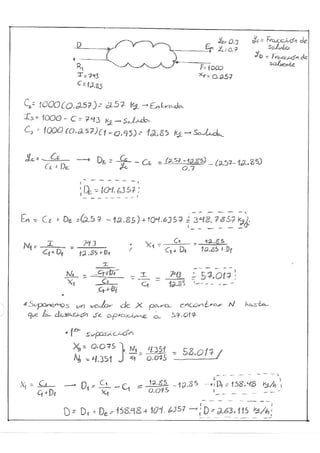 D
E₁
y_c = 0.3
y_D = 0.7
y_c = Fracción de soluto
y_D = Fracción de solvente
R₁
I = 743
C = 12.85
F = 1000
X_F = 0.257
C_E = 1000 (0.257) = 257 kg → Entrada
I_s = 1000 - C = 743 kg → Salida
C_s = 1000 (0.257)(1-0.95) = 12.85 kg → Salida
y_c = C_E / (C_E + D_E) → D_E = C_E / y_c - C_E = (257-12.85) / 0.7 - (257-12.85)
D_E = 104.6357
E_n = C_E + D_E = (257 - 12.85) + 104.6357 = 348.7857 kg/h
N₁ = I / (C₁+D₁) = 743 / (12.85+D₁) ; X₁ = C₁ / (C₁+D₁) = 12.85 / (12.85+D₁)
N₁ / X₁ = (I / (C₁+D₁)) / (C₁ / (C₁+D₁)) = I / C₁ = 743 / 12.85 = 57.017
* Suponemos un valor de X para encontrar N hasta
que la división se aproxime a 57.017
• 1ª suposición
X₆ = 0.075
N₆ = 4.351
N₁ / X₁ = 4.351 / 0.075 = 58.017
X₁ = C₁ / (C₁+D₁) → D₁ = C₁ / X₁ - C₁ = 12.85 / 0.075 - 12.85 → D₁ = 158.48 kg/h
D = D₁ + D_E = 158.48 + 104.6357 → D = 263.115 kg/h